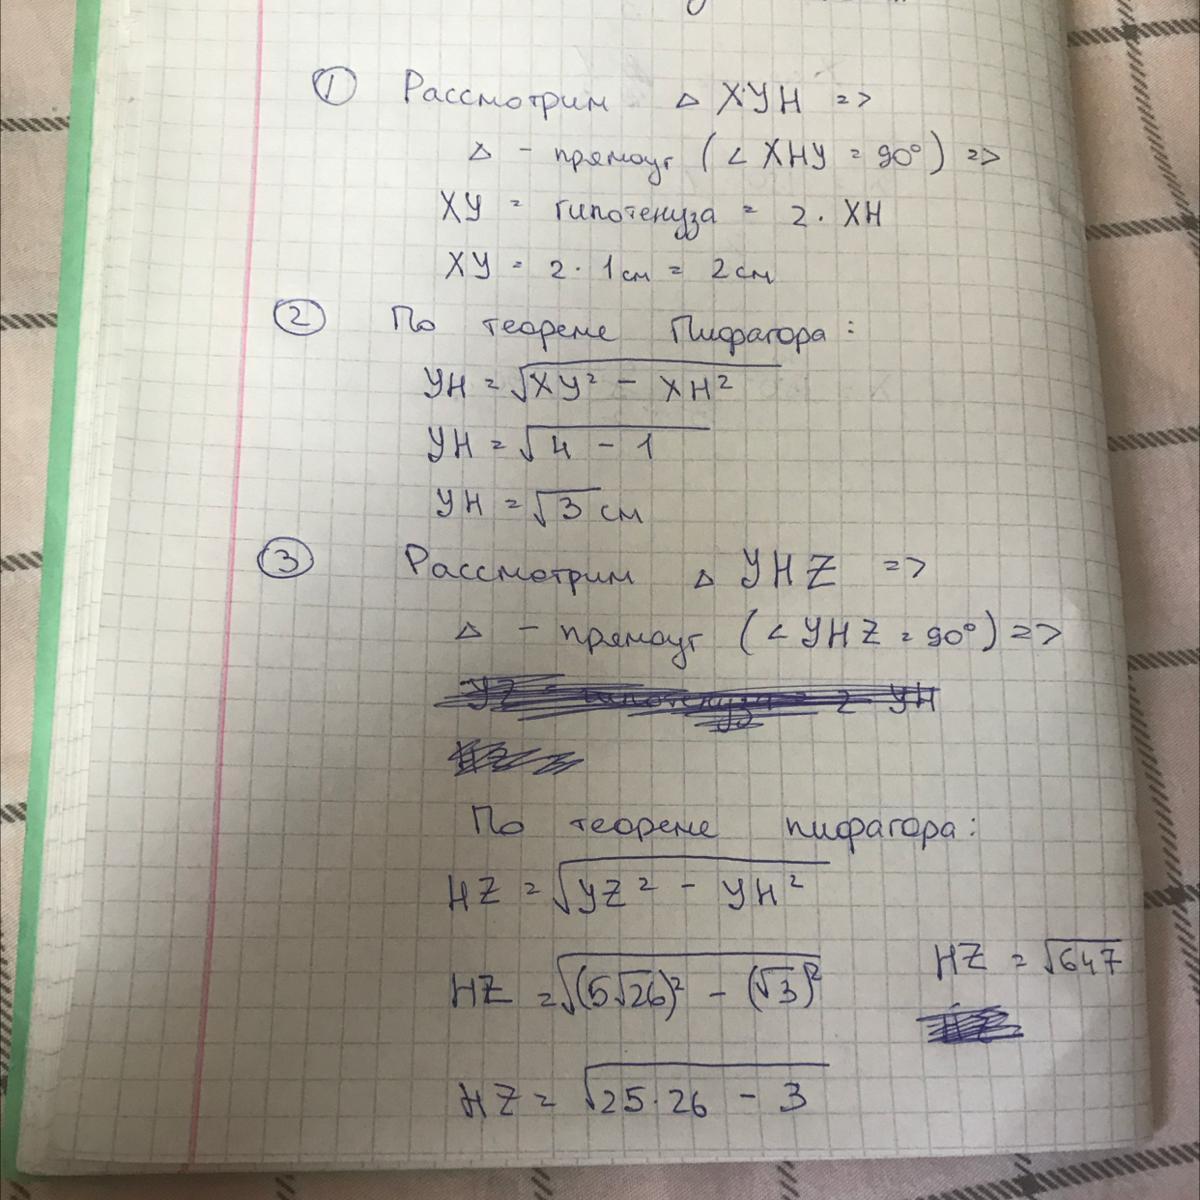 ① Рассмотрим △ XYH =>
△ - прямоуг (∠ XHY = 90°) =>
XY = гипотенуза = 2 · XH
XY = 2 · 1см = 2см
② По теореме Пифагора:
YH = √(XY² - XH²)
YH = √(4 - 1)
YH = √3 см
③ Рассмотрим △ YHZ =>
△ - прямоуг (∠ YHZ = 90°) =>
По теореме пифагора:
HZ = √(YZ² - YH²)
HZ = √((5√26)² - (√3)²)
HZ = √(25·26 - 3)
HZ = √647